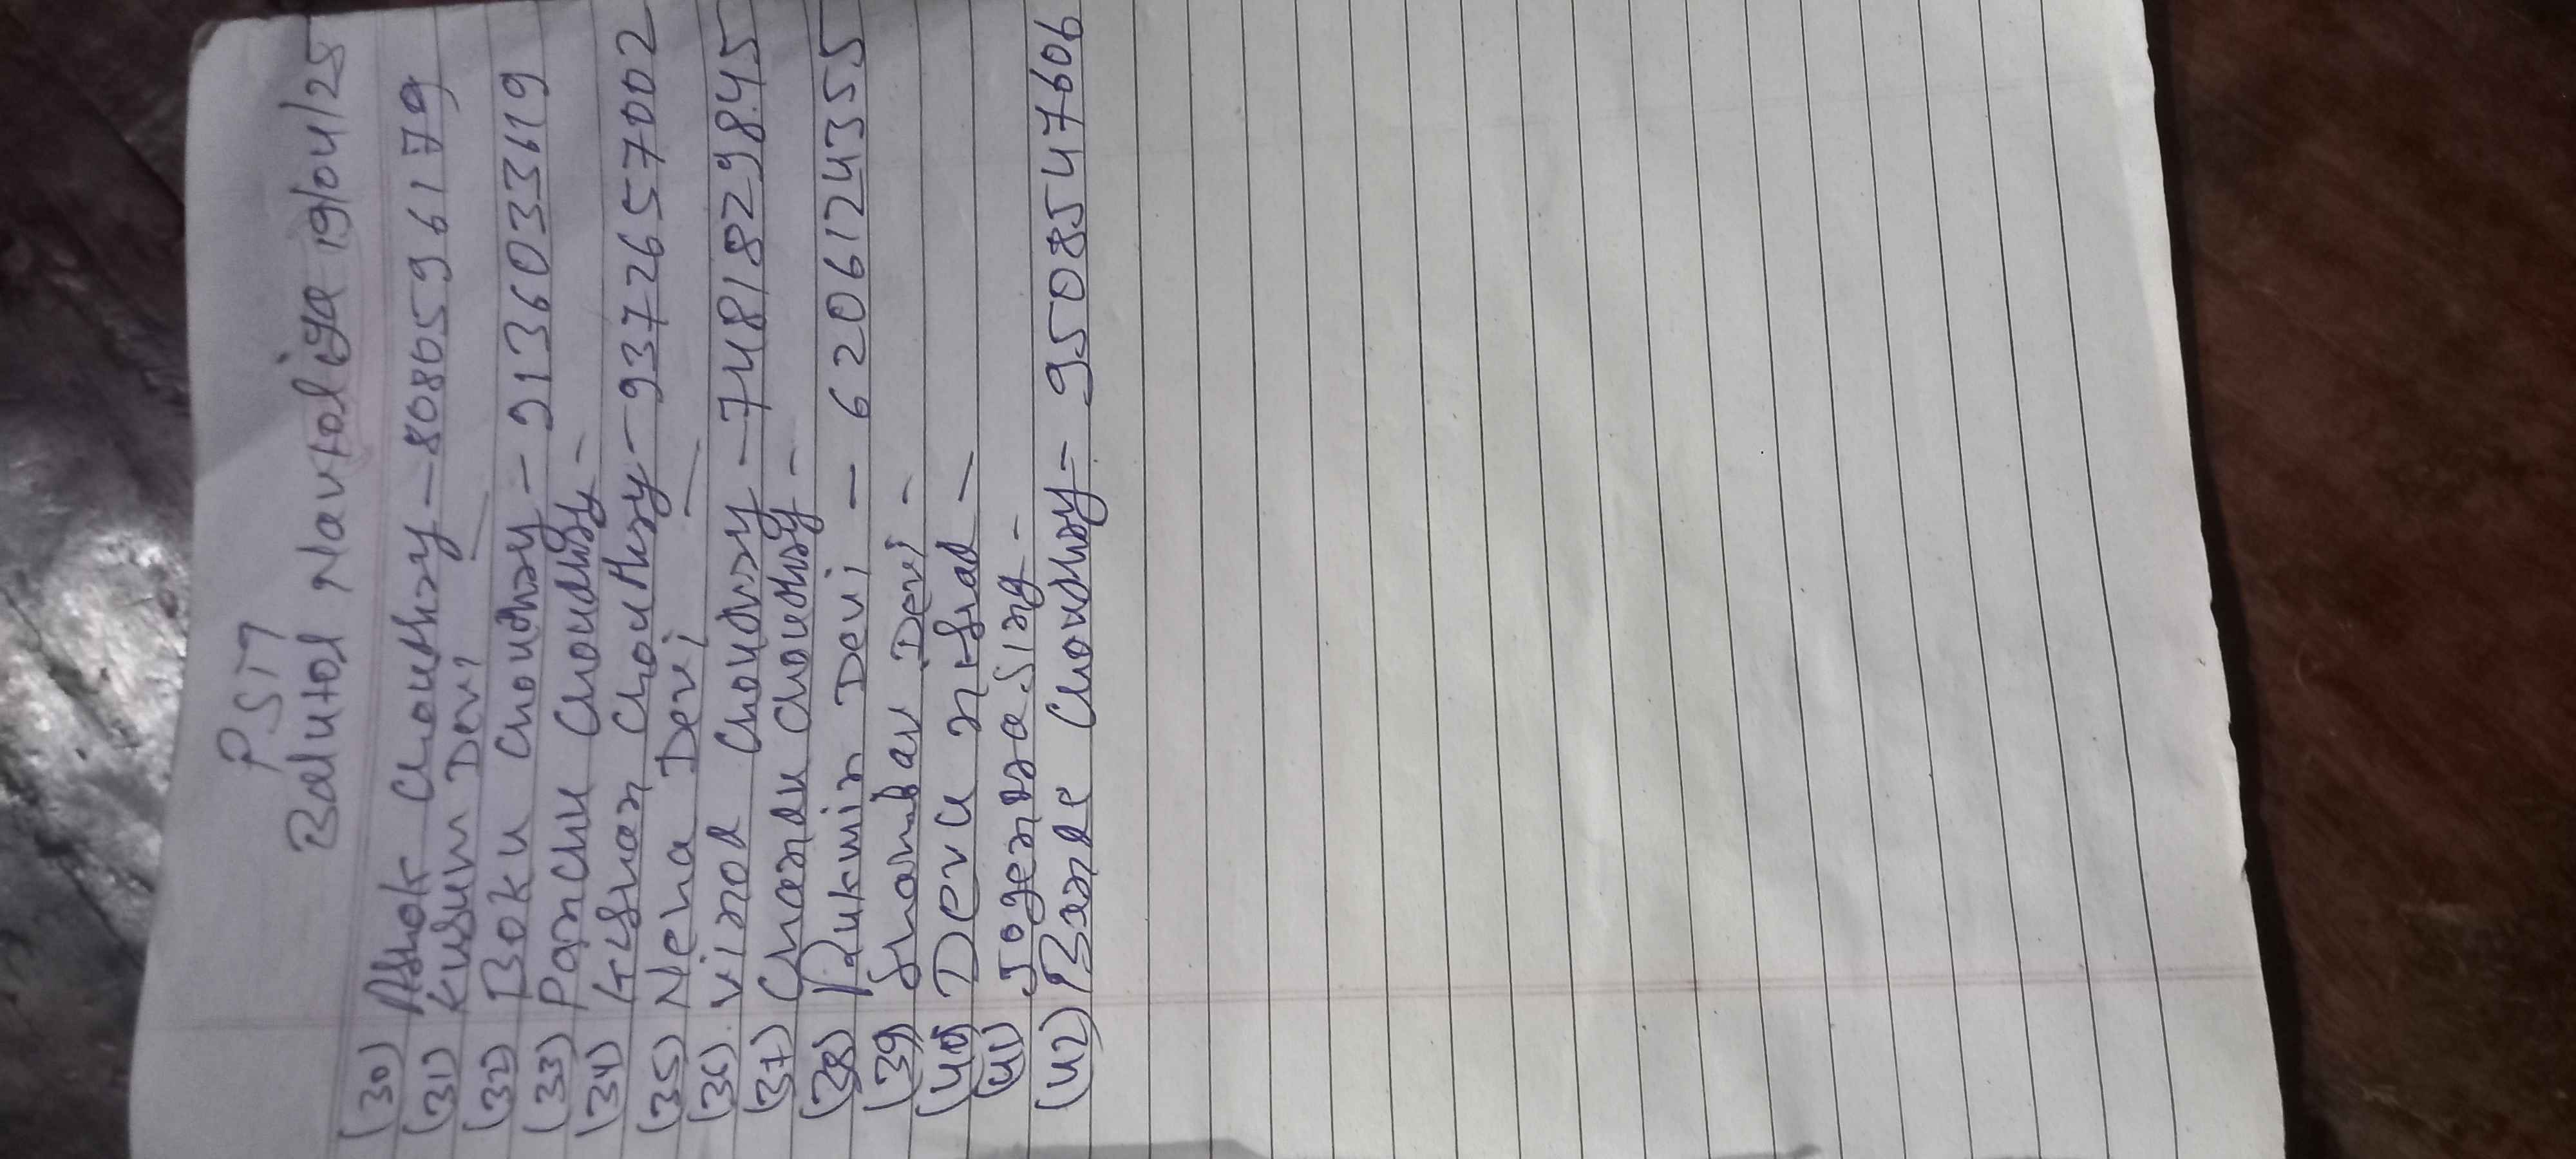 PST
Balutol Navtoliya 19/04/25
(30) Ashok Chouthry - 8080596179
(31) Kusum Devi -
(32) Boku Chouthry - 9136033619
(33) Panchu Choudhry -
(34) Kishan Chouthry - 9372657002
(35) Neha Devi -
(36) Vinod Choudhry - 7481829845
(37) Chandu Choudhry -
(38) Rukmin Devi - 6206124355
(39) Devi -
(40) Devu nishad -
(41) Jogendra Sing -
(42) Choudhry - 9508547606